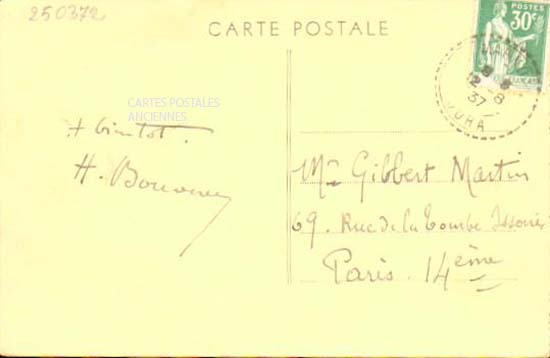 250372
CARTE POSTALE
POSTES
30c
12-8
37
JURA
CARTES POSTALES
ANCIENNES
A bientot.
H.
Mr Gilbert Martin
69. Rue de la Tombe Issoire
Paris. 14ème